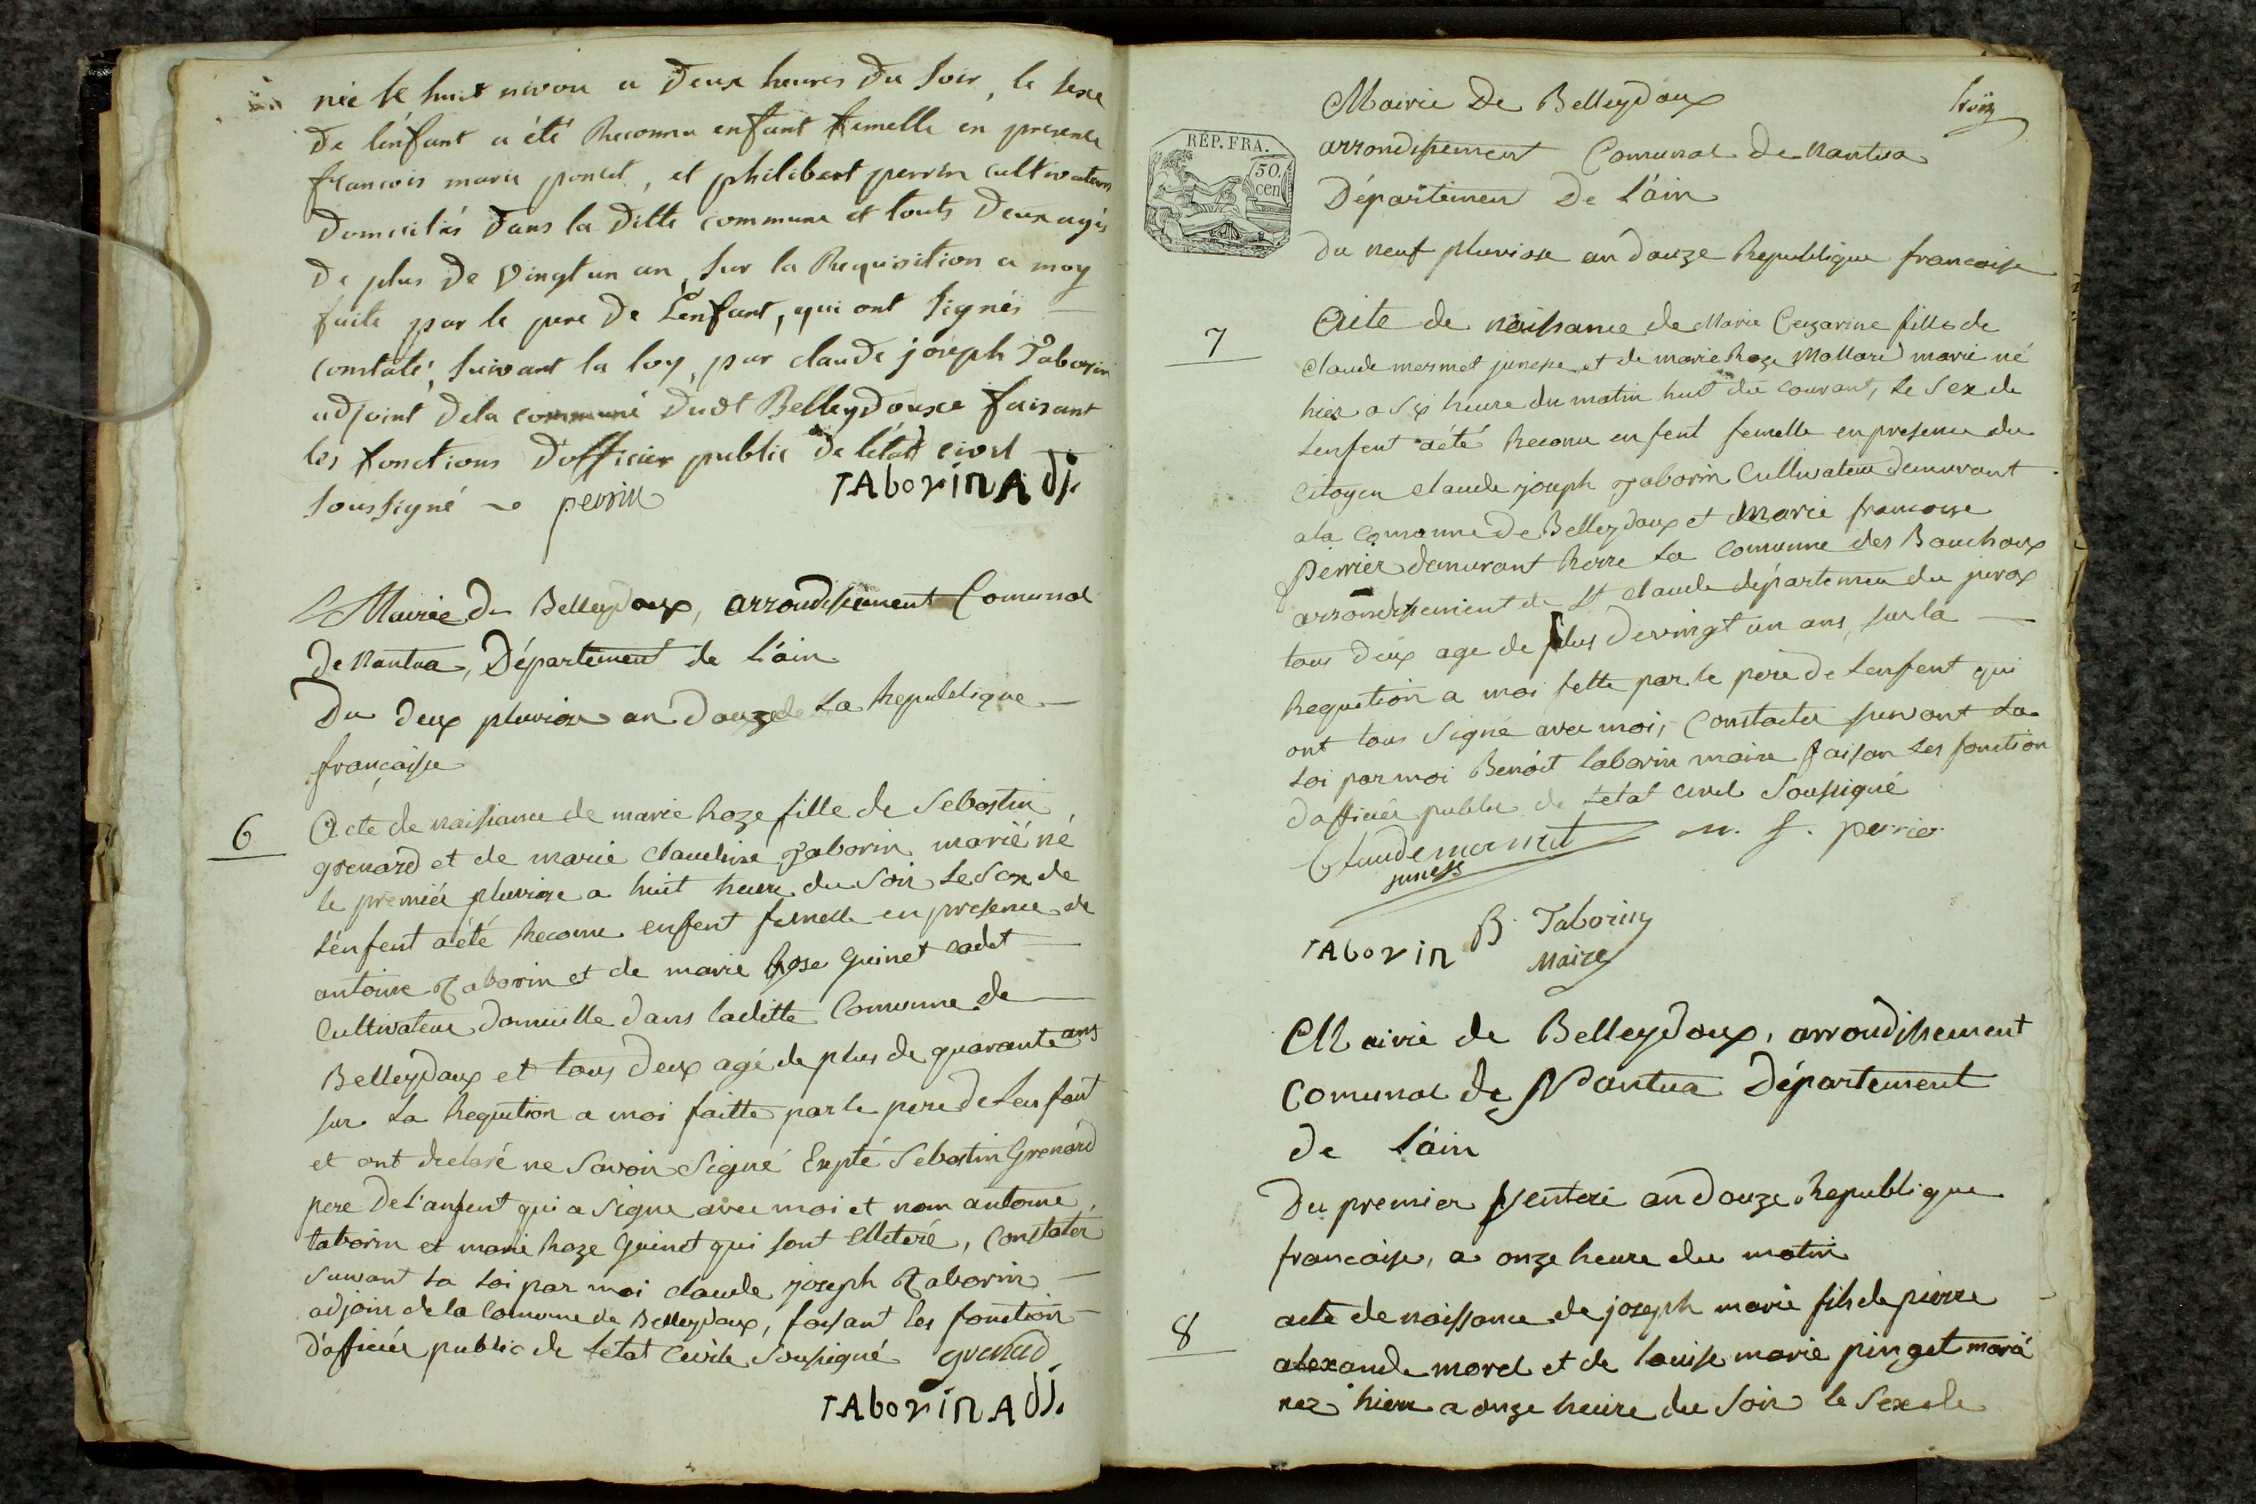 née le huit nivou a deux heures du soir, le sexe
de lenfant a été Reconnu enfant femelle en presence
francois marie poncet, et philibert perrin cultivateurs
domiciliés dans la ditte commune et touts deux agés
de plus de vingt un an, sur la Requisition a moy
faite par le pere de L'enfant, qui ont signés
constaté, suivant la loy, par claude joseph Taborin
adjoint dela commune dudt Belleydouxe faisant
les fonctions d'officier public de létat civil
soussigné perrin TAborin Adj.
Mairie de Belleydoux, arrondisement Comunal
de Nantua, Département de L'ain
Du deux pluviose an douze de La Republique
française
6 Acte de naissance de marie Roze fille de Sebastin
grenard et de marie claudine Taborin marié né
le premiér pluviose a huit heure du Soir Le Sex de
L'enfent a été Reconu enfent femelle en presence de
antoine Taborin et de marie Rose guinet cadet
Cultivateur domicille dans laditte Comunne de
Belleydoux et tous deux agé de plus de quarante ans
sur La Requition a moi faitte par le pere de Lenfant
et ont declaré ne Savoir Signé Expté Sebastin Grenard
pere De L'anfent qui a Signe avec moi et nom antoine
taborin et marie Roze Guinet qui sont Elleteré, Constater
suivant La Loi par moi claude joseph Taborin
adjoin de la Comune de Belleydoux, faisant les fonction
d'officiér public de Letat Civile Sousigné grenard
TAborin Adj.
Mairie De Belleydoux
RÉP. FRA.
50. cen
arrondisement Comunal de Nantua
Départemen De L'ain
du neuf pluviose an douze Republique francaise
7 Acte de naissance de Marie Cezarine fille de
claude mermet junesse et de marie Roze Mollard marié né
hier a six heure du matin huit du courant, Le Sex de
Lenfent a été Reconu enfent femelle en presence du
Citoyen claude joseph Taborin Cultivateur demurant
a la comunne de Belleydoux et Marie francoise
Perrier demurant horre La Comunne des Bouchoux
arrondissement de St claude département du jurax
tous deux age de plus de vingt un ans, sur la
Requetion a moi fette par le pere de Lenfent qui
ont tous Signé avec moi, Constater suivant La
Loi par moi Benoit taborin maire faisan Les fonction
d'officiér public de Letat civil Sousigné
Claude mermet m. f. perrier
juness
TAborin B. Taborin
Maire
Mairie de Belleydoux, arrondissement
Comunal de Nantua Département
de L'ain
Du premier ventose an douze Republique
francaise, a onze heure du matin
8 acte de naissance de joseph marie fils de pierre
alexande morel et de louise marie pinget marié
nez hiere a onze heure du Soir le Sexe de